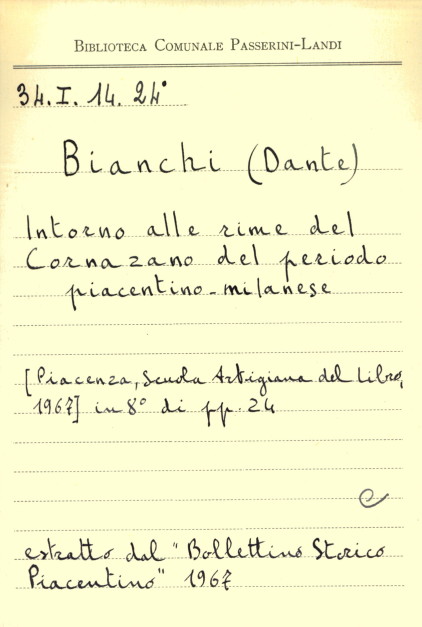 Biblioteca Comunale Passerini-Landi
34. I. 14. 24°
Bianchi (Dante)
Intorno alle rime del
Cornazano del periodo
piacentino-milanese
[Piacenza, Scuola Artigiana del Libro,
1967] in 8° di pp. 24
e
estratto dal "Bollettino Storico
Piacentino" 1967